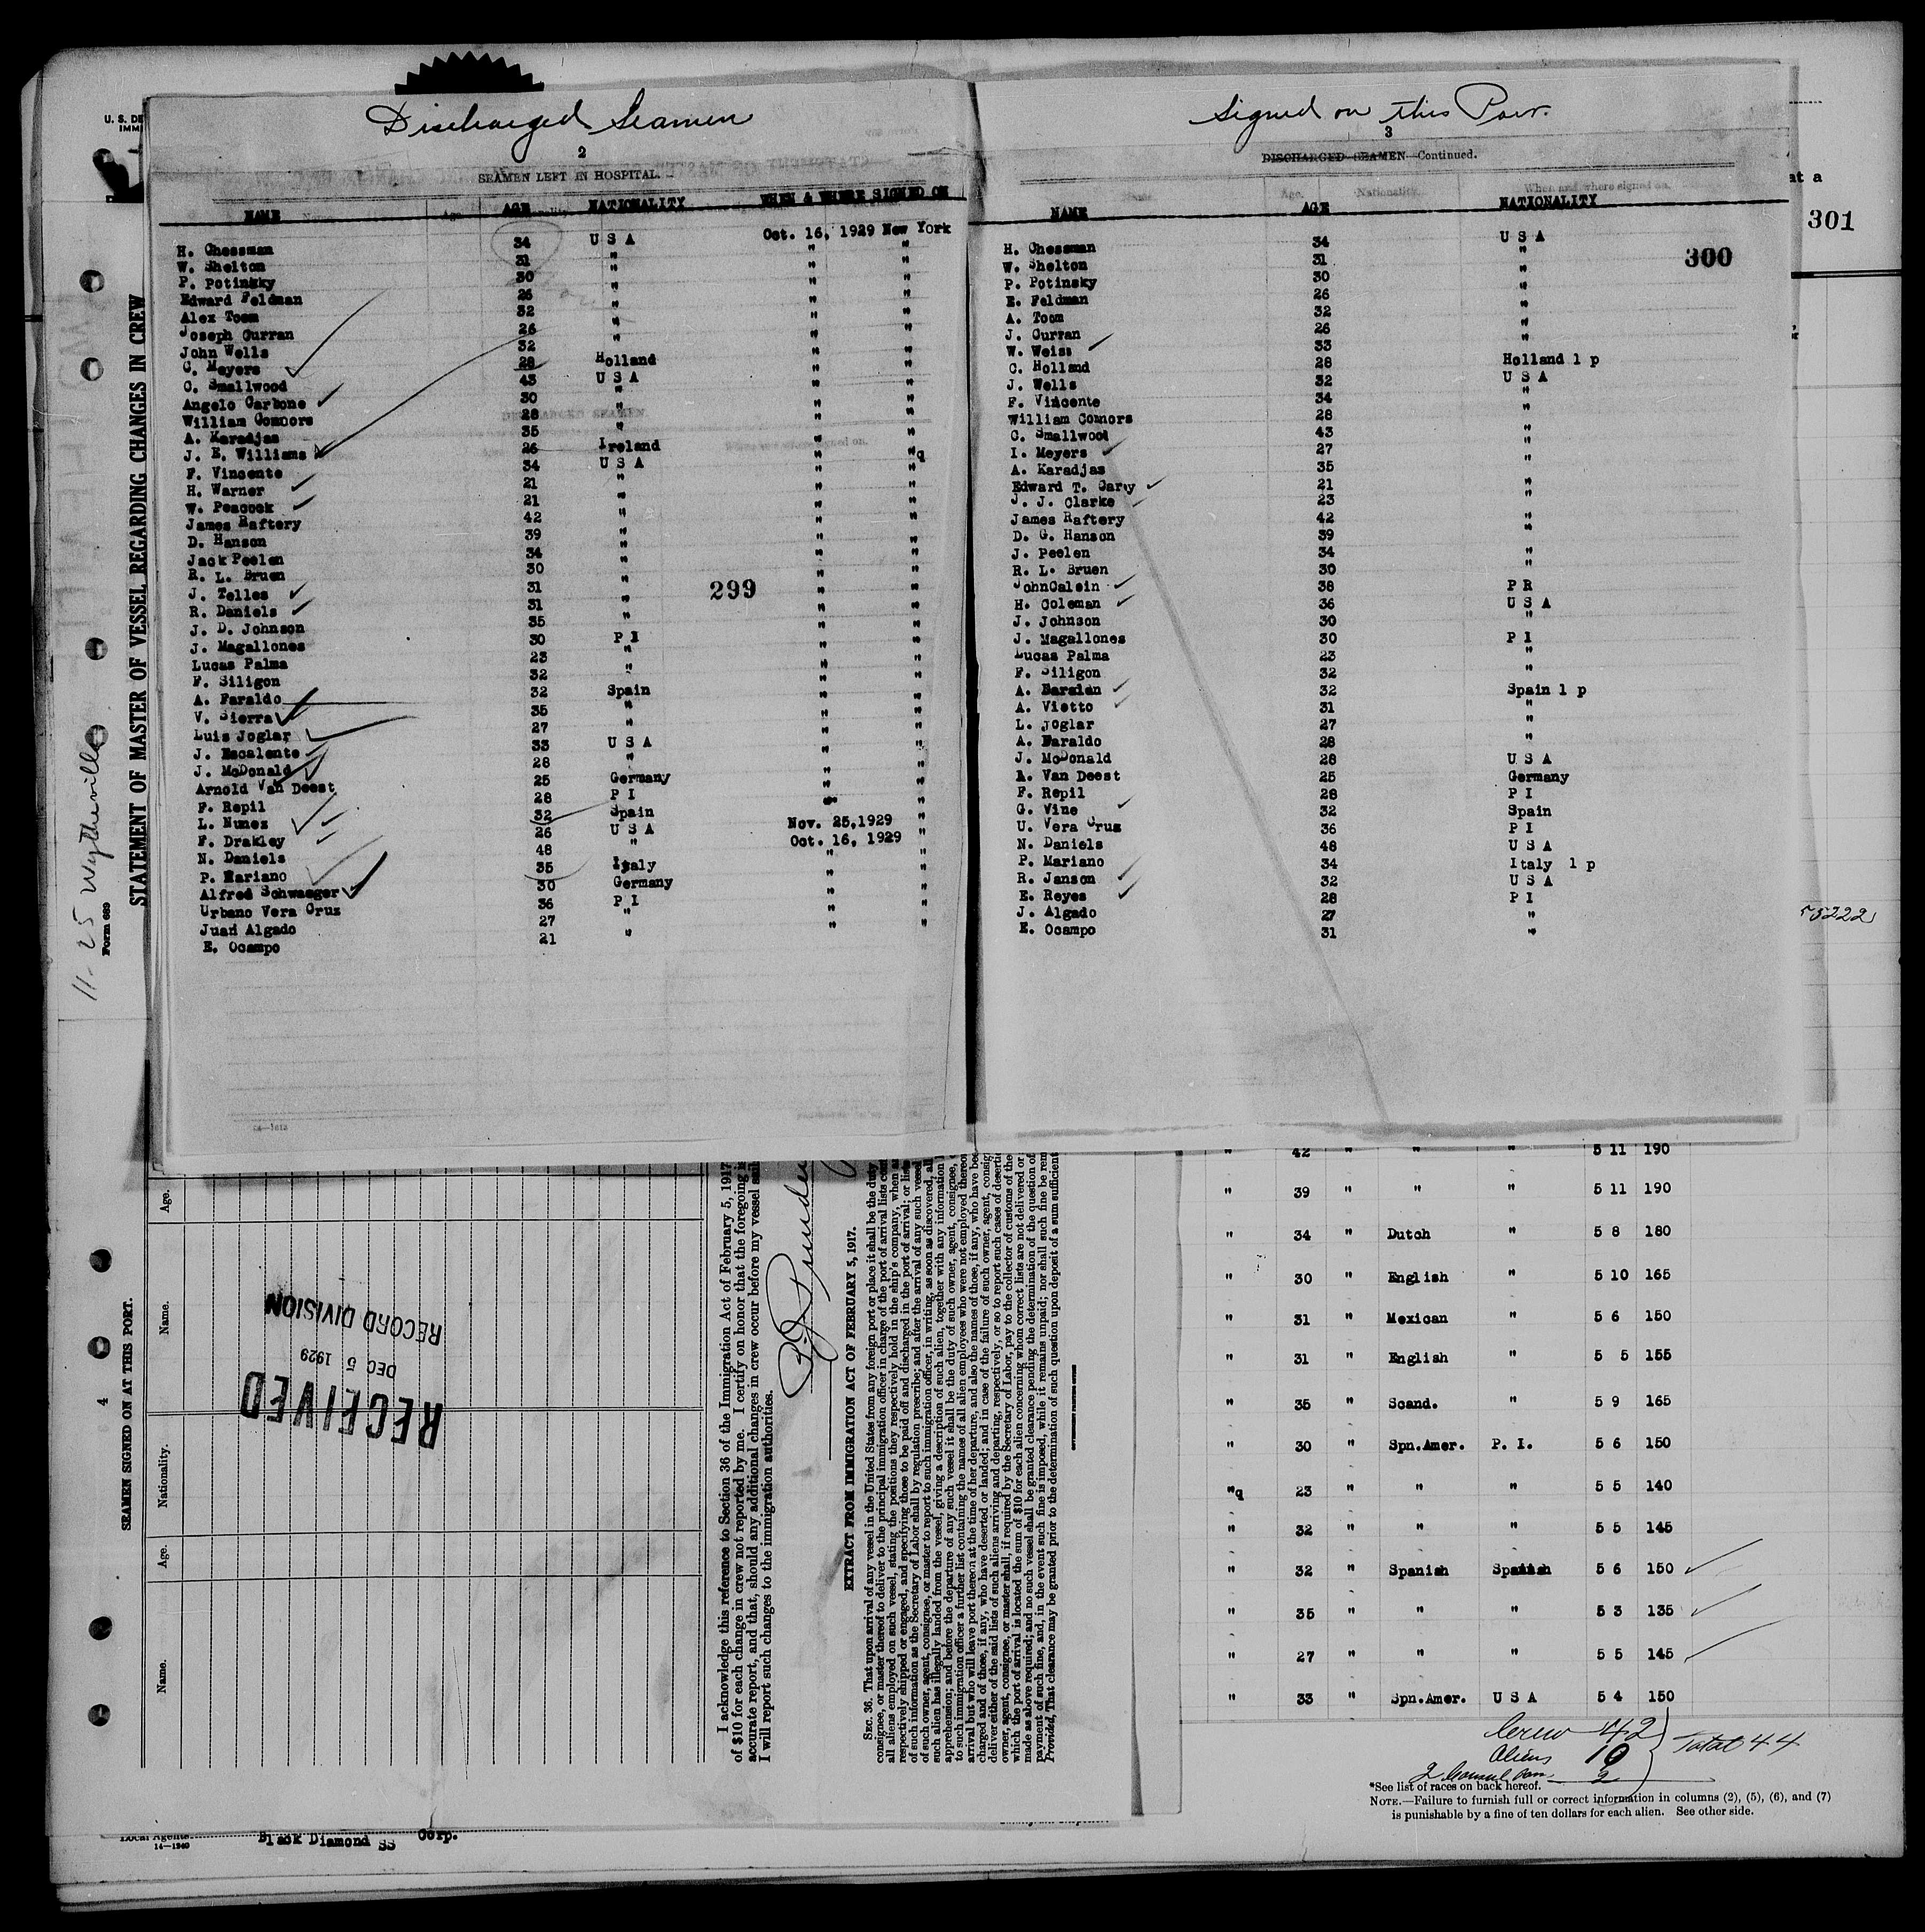 U. S. DE
IMMI
Discharged Seamen
2
SEAMEN LEFT IN HOSPITAL.
NAME AGE NATIONALITY WHEN & WHERE SIGNED ON
H. Chessman 34 U S A Oct. 16, 1929 New York
W. Shelton 31 " " "
P. Potinsky 30 " " "
Edward Feldman 26 " " "
Alex Toom 32 " " "
Joseph Curran 26 " " "
John Wells 32 " " "
C. Meyers 28 Holland " "
C. Smallwood 43 U S A " "
Angelo Carbone 30 " " "
William Connors 28 " " "
A. Karadjas 35 " " "
J. E. Williams 26 Ireland " "q
F. Vincente 34 U S A " "
H. Warner 21 " " "
W. Peacock 21 " " "
James Raftery 42 " " "
D. Hanson 39 " " "
Jack Peelen 34 " " "
R. L. Bruen 30 " " "
J. Telles 31 " " "
R. Daniels 31 " " "
J. D. Johnson 35 " " "
J. Magallones 30 P I " "
Lucas Palma 23 " " "
F. Siligon 32 " " "
A. Faraldo 32 Spain " "
V. Sierra 35 " " "
Luis Joglar 27 " " "
J. Escalente 33 U S A " "
J. McDonald 28 " " "
Arnold Van Deest 25 Germany " "
F. Repil 28 P I " "
L. Nunez 32 Spain " "
F. Drakley 26 U S A Nov. 25,1929 "
N. Daniels 48 " Oct. 16, 1929 "
P. Mariano 35 Italy " "
Alfred Schwaeger 30 Germany " "
Urbano Vera Cruz 36 P I " "
Juan Algado 27 " " "
E. Ocampo 21 "
299
14—1613
Signed on this Port.
3
DISCHARGED SEAMEN—Continued.
NAME AGE NATIONALITY
H. Chessman 34 U S A
W. Shelton 31 "
P. Potinsky 30 "
E. Feldman 26 "
A. Toom 32 "
J. Curran 26 "
W. Weiss 33 "
C. Holland 28 Holland 1 p
J. Wells 32 U S A
F. Vincente 34 "
William Connors 28 "
C. Smallwood 43 "
I. Meyers 27 "
A. Karadjas 35 "
Edward T. Carey 21 "
J. J. Clarke 23 "
James Raftery 42 "
D. G. Hanson 39
J. Peelen 34 "
R. L. Bruen 30 "
JohnCalsin 38 P R
H. Coleman 36 U S A
J. Johnson 30 "
J. Magallones 30 P I
Lucas Palma 23 "
F. Siligon 32 "
A. 32 Spain 1 p
A. Vietto 31 "
L. Joglar 27 "
A. Faraldo 28 "
J. McDonald 28 U S A
A. Van Deest 25 Germany
F. Repil 28 P I
G. Vine 32 Spain
U. Vera Cruz 36 P I
N. Daniels 48 U S A
P. Mariano 34 Italy 1 p
R. Janson 32 U S A
E. Reyes 28 P I
J. Algado 27 "
E. Ocampo 31 "
300
at a
301
53222
STATEMENT OF MASTER OF VESSEL REGARDING CHANGES IN CREW
Form 689
11-25 Wytheville
4
SEAMEN SIGNED ON AT THIS PORT.
Name. Age. Nationality. Name. Age.
RECEIVED
DEC 5 1929
RECORD DIVISION
I acknowledge this reference to Section 36 of the Immigration Act of February 5, 1917
of $10 for each change in crew not reported by me. I certify on honor that the foregoing is
accurate report, and that, should any additional changes in crew occur before my vessel sail
I will report such changes to the immigration authorities.
EXTRACT FROM IMMIGRATION ACT OF FEBRUARY 5, 1917.
SEC. 36. That upon arrival of any vessel in the United States from any foreign port or place it shall be the duty
consignee, or master thereof to deliver to the principal immigration officer in charge of the port of arrival lists con
all aliens employed on such vessel, stating the positions they respectively hold in the ship's company, when a
respectively shipped or engaged, and specifying those to be paid off and discharged in the port of arrival; or lists
of such information as the Secretary of Labor shall by regulation prescribe; and after the arrival of any such vessel
of such owner, agent, consignee, or master to report to such immigration officer, in writing, as soon as discovered, all
such alien has illegally landed from the vessel, giving a description of such alien, together with any information
apprehension; and before the departure of any such vessel it shall be the duty of such owner, agent, consignee,
to such immigration officer a further list containing the names of all alien employees who were not employed thereo
arrival but who will leave port thereon at the time of her departure, and also the names of those, if any, who have bee
charged and of those, if any, who have deserted or landed; and in case of the failure of such owner, agent, consig
deliver either of the said lists of such aliens arriving and departing, respectively, or so to report such cases of deserti
owner, agent, consignee, or master shall, if required by the Secretary of Labor, pay to the collector of customs of the
which the port of arrival is located the sum of $10 for each alien concerning whom correct lists are not delivered or
made as above required; and no such vessel shall be granted clearance pending the determination of the question of
payment of such fine, and, in the event such fine is imposed, while it remains unpaid; nor shall such fine be rem
Provided, That clearance may be granted prior to the determination of such question upon deposit of a sum sufficient
" 42 " " " 5 11 190
" 39 " " " 5 11 190
" 34 " Dutch " 5 8 180
" 30 " English " 5 10 165
" 31 " Mexican " 5 6 150
" 31 " English " 5 5 155
" 35 " Scand. " 5 9 165
" 30 " Spn.Amer. P. I. 5 6 150
"q 23 " " " 5 5 140
" 32 " " " 5 5 145
" 32 " Spanish Spanish 5 6 150
" 35 " " " 5 3 135
" 27 " " " 5 5 145
" 33 " Spn.Amer. U S A 5 4 150
Crew 42
Aliens 10
2
Total 44
*See list of races on back hereof.
NOTE.—Failure to furnish full or correct information in columns (2), (5), (6), and (7)
is punishable by a fine of ten dollars for each alien. See other side.
Local Agents
14—1240
Black Diamond SS Corp.